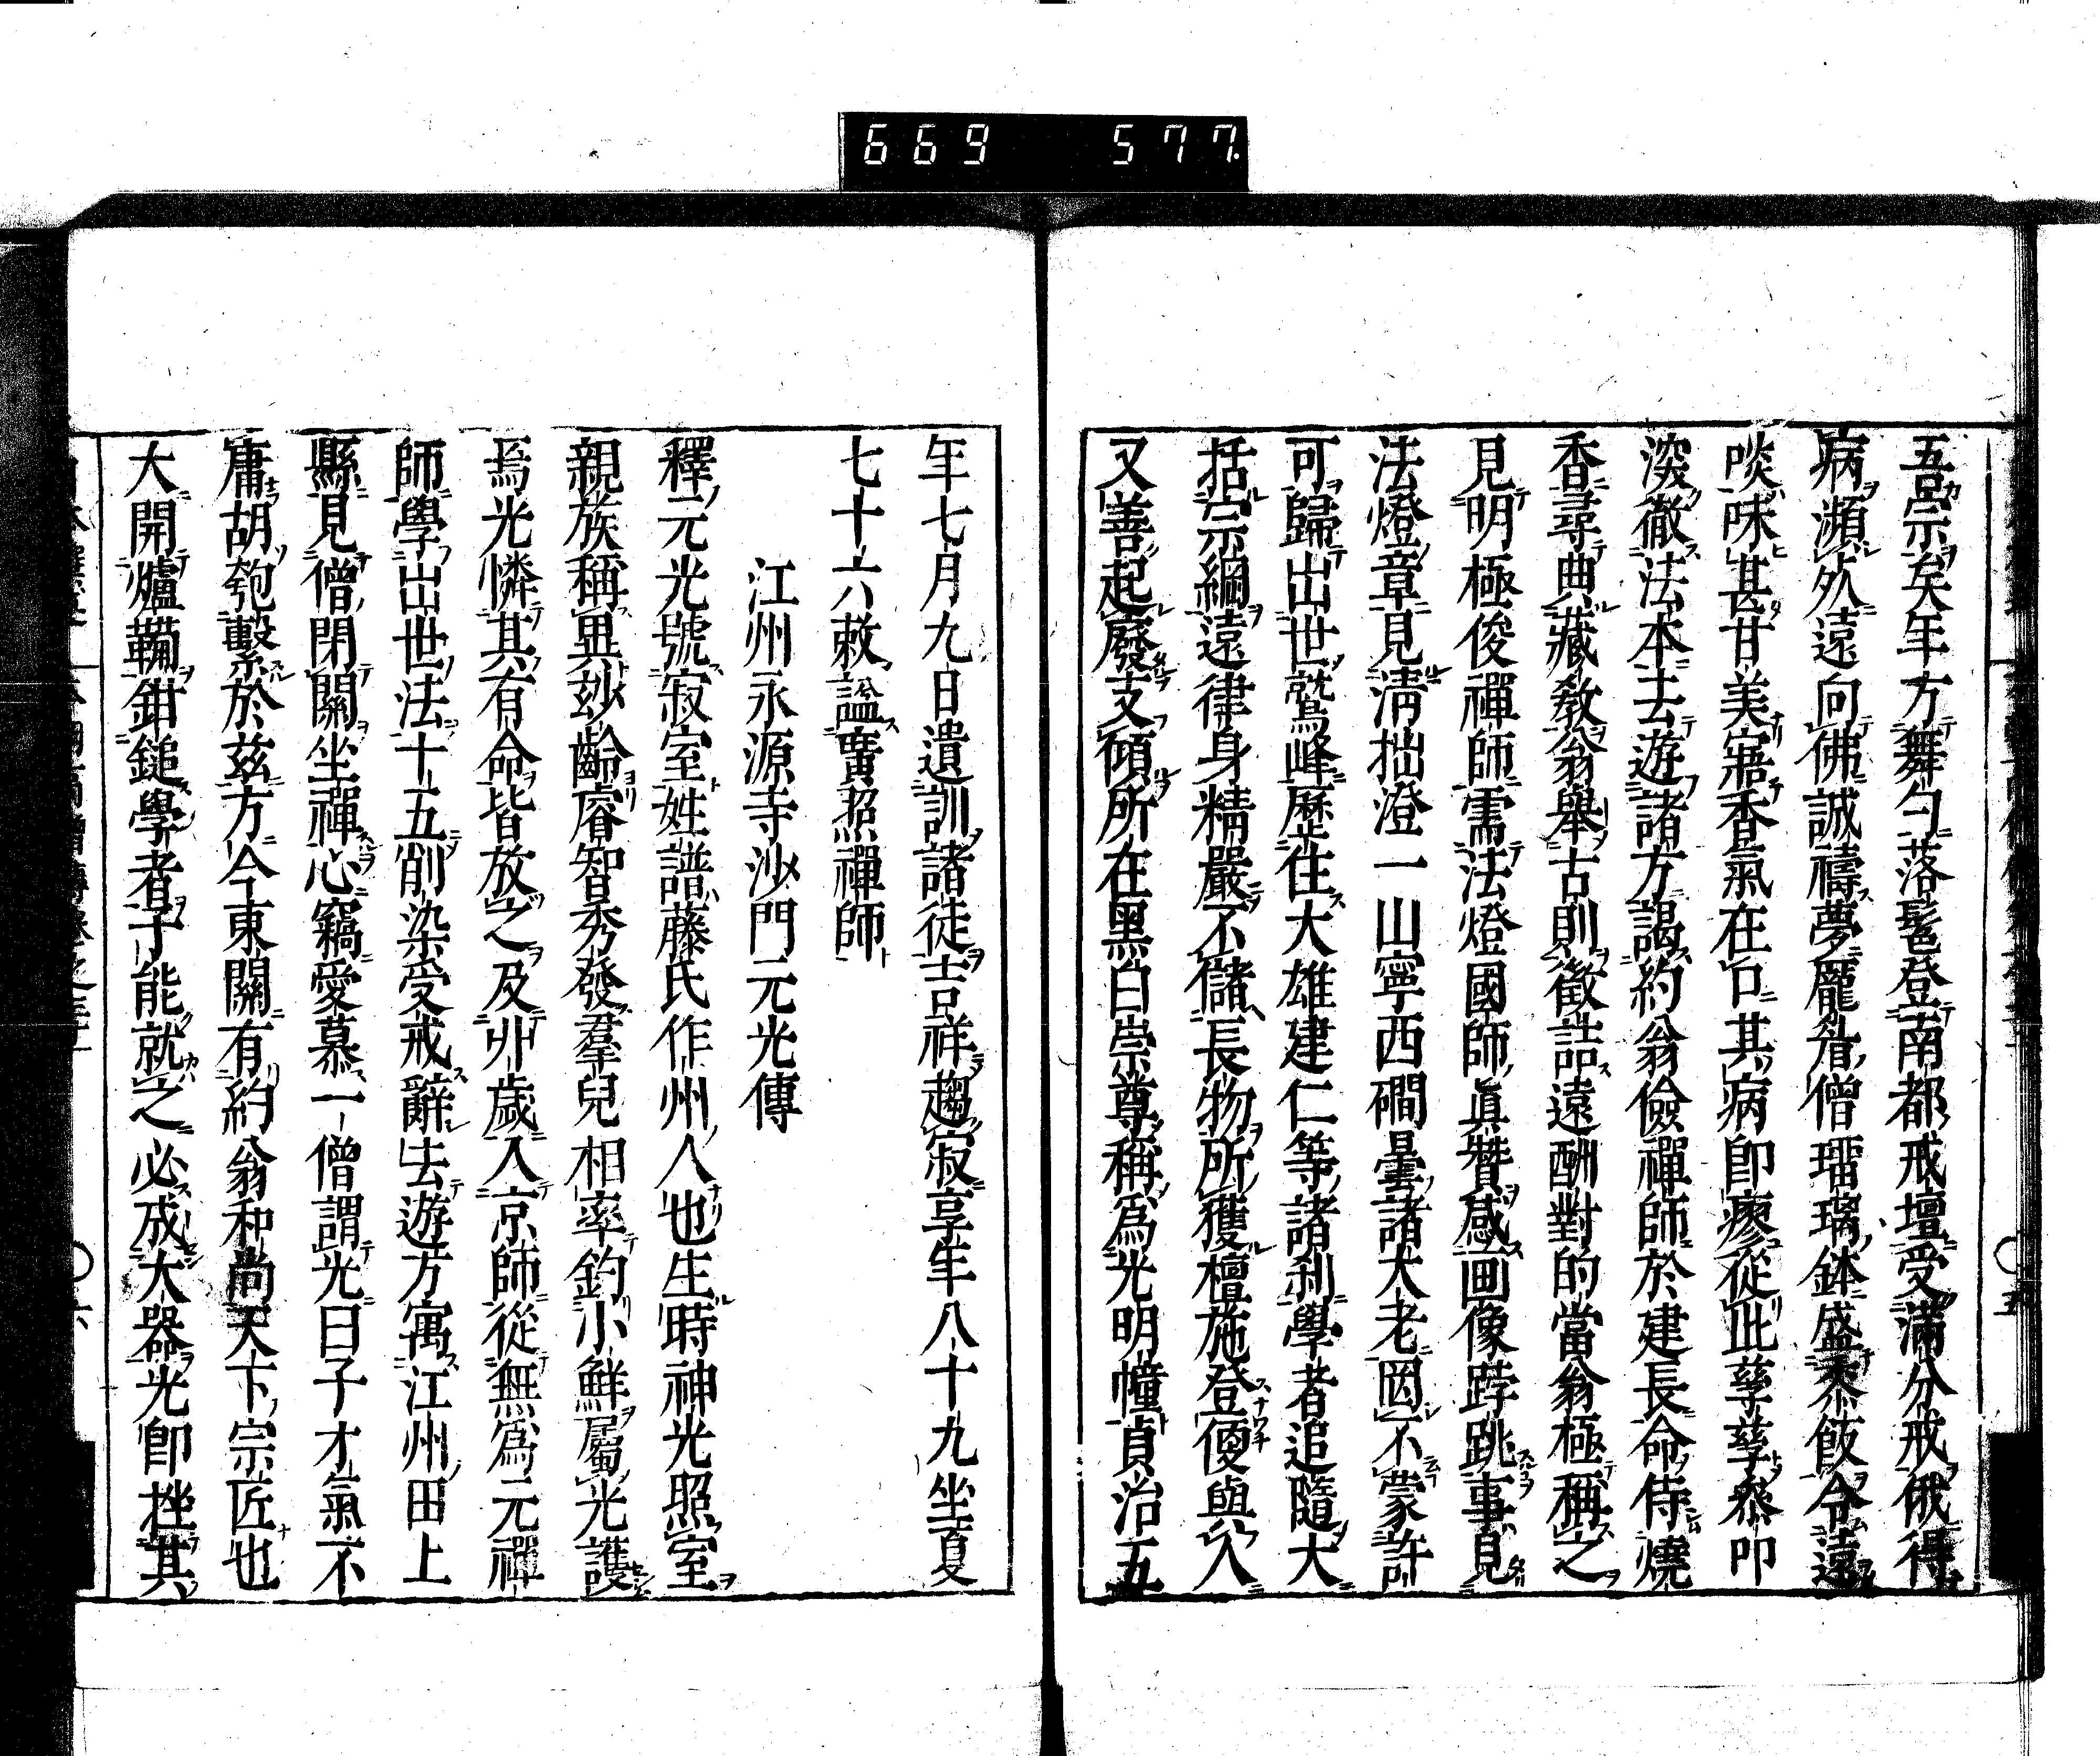 669 577
吾宗矣年方舞勺落髦登南都戒壇受滿分戒俄得
病瀕死遠向佛誠禱夢龐眉僧瑠璃鉢盛黍飯令遠
啖味甚甘美寤香氣在口其病卽瘳從此孳孳參叩
深徹法本去遊諸方謁約翁儉禪師於建長命侍燒
香尋典藏教翁舉古則徵詰遠酬對的當翁極稱之
見明極俊禪師需法燈國師眞贊感画像𨁝跳事見
法燈章見淸拙澄一山寧西磵曇諸大老罔不蒙許
可歸出世鷲峰歷住大雄建仁等諸刹學者追隨大
括宗綱遠律身精嚴不儲長物所獲檀施登便與人
又善起廢支傾所在黑白崇尊稱爲光明幢貞治五
年七月九日遺訓諸徒吉祥趨寂享年八十九坐夏
七十六敕諡廣照禪師
江州永源寺沙門元光傳
釋元光號寂室姓譜藤氏作州人也生時神光照室
親族稱異玅齡睿智秀發羣兒相率釣小鮮屬光護
焉光憐其有命皆放之及丱歲入京師從無爲元禪
師學出世法十五削染受戒辭去遊方寓江州田上
縣見僧閉關坐禪心竊愛慕一僧謂光曰子才氣不
庸胡匏繫於玆方今東關有約翁和尚天下宗匠也
大開爐鞴鉗鎚學者子能就之必成大器光卽挫其